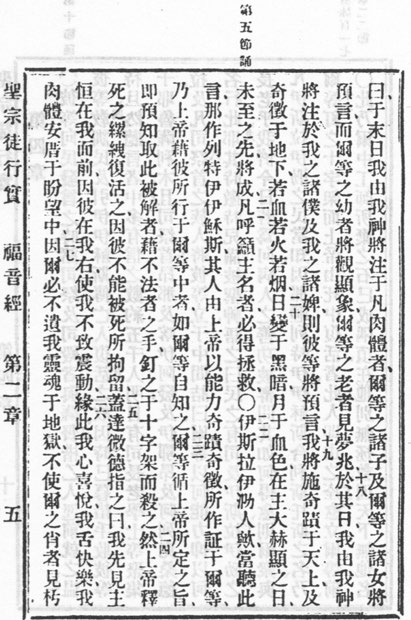 第五節誦
曰于末日我由我神將注于凡肉體者爾等之諸子及爾等之諸女將
預言而爾等之幼者將觀顯象爾等之老者見夢兆十八於其日我由我神
將注於我之諸僕及我之諸婢則彼等將預言十九我將施奇蹟于天上及
奇徵于地下若血若火若烟二十日變于黑暗月于血色在主大赫顯之日
未至之先將成二一凡呼籲主名者必得拯救〇二二伊斯拉伊泐人歟當聽此
言那作列特伊伊穌斯其人由上帝以能力奇蹟奇徵所作証于爾等
乃上帝藉彼所行于爾等中者如爾等自知之二三爾等循上帝所定之旨
即預知取此被解者藉不法者之手釘之于十字架而殺之二四然上帝釋
死之縲絏復活之因彼不能被死所拘留二五蓋達微德指之曰我先見主
恒在我面前因彼在我右使我不致震動二六緣此我心喜悅我舌快樂我
肉體安厝于盼望中二七因爾必不遺我靈魂于地獄不使爾之肖者見朽
聖宗徒行實 福音經 第二章 五